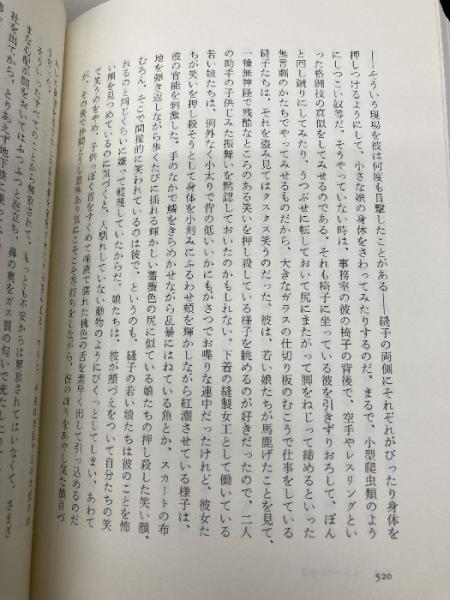 ――そういう現場を彼は何度も目撃したことがある――縫子の両側にそれぞれがぴったり身体を
押しつけるようにして、小さな娘の身体をさわってみたりするのだ。まるで、小型爬虫類のよう
にしつこい奴等だ。そうやっていない時は、事務室の彼の椅子の背後で、空手やレスリングとい
った格闘技の真似をしてみせるのである。それも椅子に坐っている彼を引きずりおろして、ぽん
と回し蹴りにしてみたり、うつぶせに転しておいて尻にまたがって脚をねじって締めるといった
無言劇のかたちでやってみせるものだから、大きなガラスの仕切り板のむこうで仕事をしている
縫子たちは、それを盗み見てはクスクス笑うのだった。彼は、若い娘たちが馬鹿げたことを見て、
一種無神経で残酷なところのある笑いを押し殺している様子を眺めるのが好きだったので、二人
の助手の子供じみた振舞いを黙認しておいたのかもしれない。下着の縫製女工として働いている
若い娘たちは、例外なく小太りで背の低いいかにもがさつでお喋りな連中だったけれど、彼女た
ちが笑いを押し殺そうとして身体を小刻みにふるわせ頬を輝かしながら紅潮させている様子は、
彼の官能を刺激した。手のなかで鱗をきらめかせながら乱暴にはねている魚とか、スカートの布
地を弾き返しながら歩くたびに揺れる輝かしい薔薇色の尻に似ている娘たちの押し殺した笑い顔。
むろん、そこで間接的に笑われているのは彼で、というのも、縫子の若い娘たちは彼のことを怖
れるのと同じくらいに嫌って軽蔑していたからだ。娘たちは、彼が頬づえをついて自分たちの笑
い顔を見つめているのに気づくと、人馴れしていない動物のようにびくっとしてしまい、あわて
て笑うのをやめ、子供っぽく首をすくめて唾液で濡れた桃色の舌を素早く出して引っ込めるのだ
が、その後で仲間どうし意味あり気にこそこそ耳打ちをしながら、
もっとも不安からは解放されてはいなくて、さまざ
520